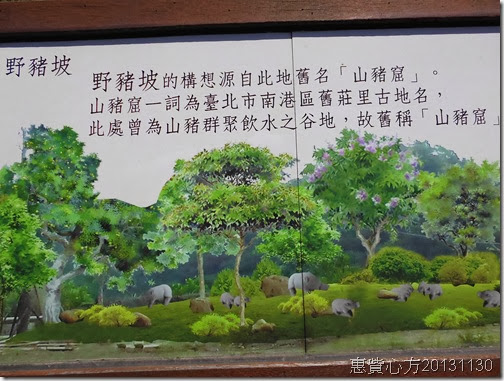 野豬坡
野豬坡的構想源自此地舊名「山豬窟」。
山豬窟一詞為臺北市南港區舊莊里古地名，
此處曾為山豬群聚飲水之谷地，故舊稱「山豬窟」
惠質心方20131130